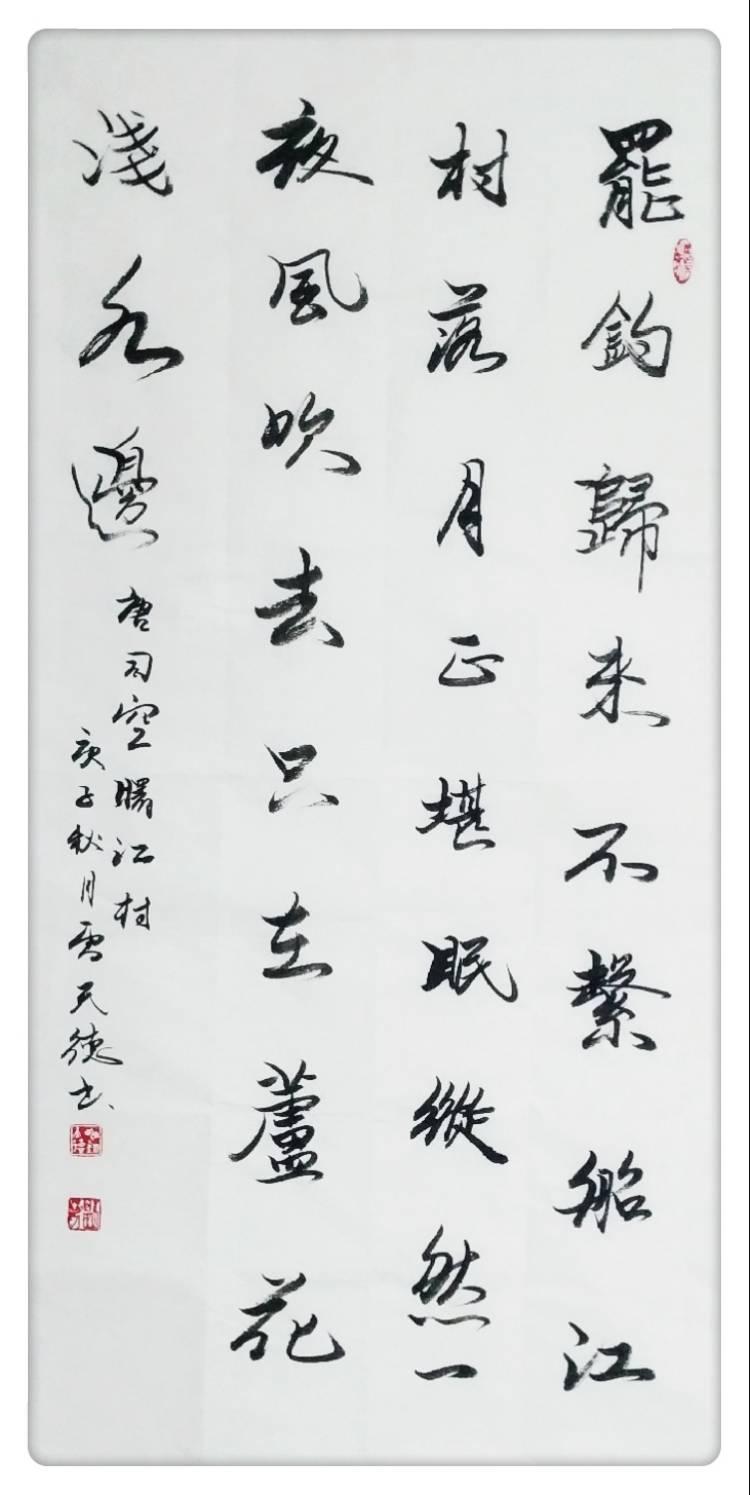 罷釣歸來不繫船江
村落月正堪眠縱然一
夜風吹去只在蘆花
淺水邊
唐司空曙江村
庚子秋月雷天德书